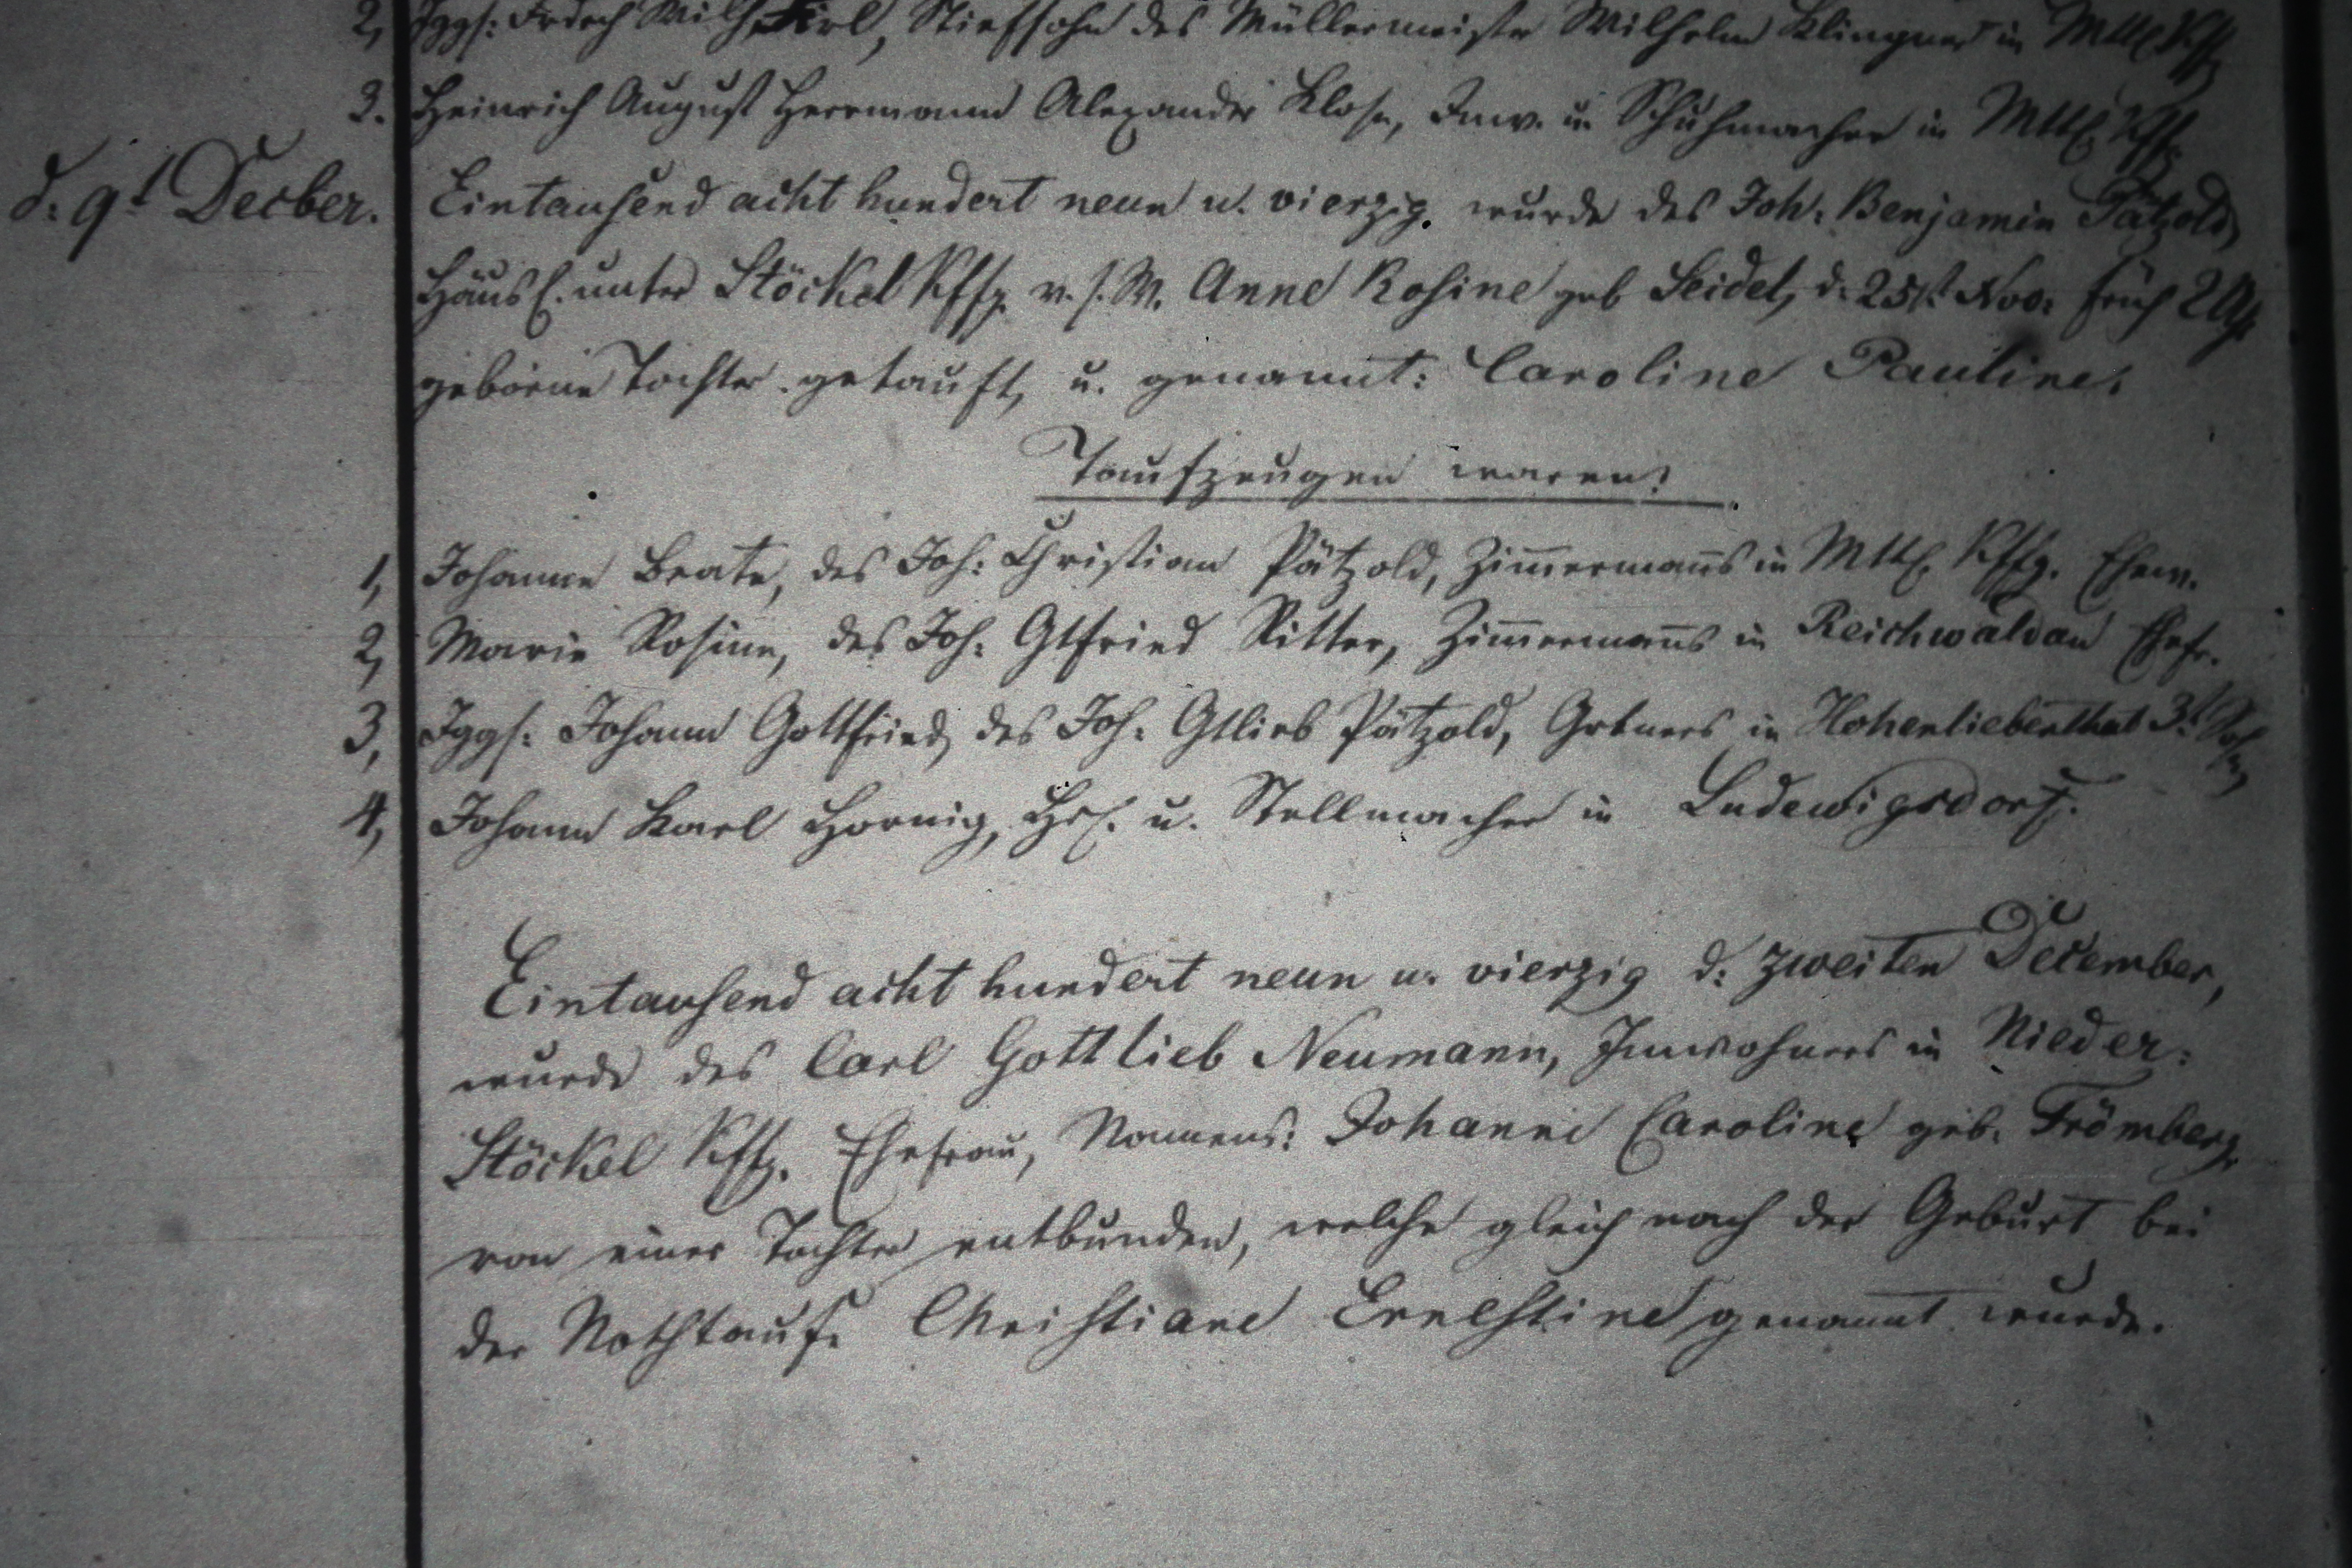 2, Jggs: Friedrich Wilh. Stiefsohn des Müllermeister Wilhelm Klingner in Mttl Kffg
3. Heinrich August Herrmann Alexander Klose, Inw. u. Schuhmacher in Mttl. Kffg.
d: 9t Decber. Eintausend acht hundert neun u. vierzig. wurde des Joh: Benjamin Pätzold,
Häusl. unter Stöckel Kffg. v. s. W. Anne Rosine geb Seidel, d. 25st Nov: früh 2 Uhr
geborne Tochter getauft, u. genannt: Caroline Pauline.
Taufzeugen waren:
1, Johanne Beate, des Joh: Christian Pätzold, Zim̄erman̄s in Mttl. Kffg. Ehew.
2, Marie Rosine, des Joh: Gtfried Ritter, Zim̄erman̄s in Reichwaldau Ehefr.
3, Jggs: Johann Gottfried, des Joh: Gtlieb Pätzold, Grtners in Hohenliebenthal 3t Sohn,
4, Johann Karl Hornig, Hsl. u. Stellmacher in Ludewigsdorf.
Eintausend acht hundert neun u. vierzig d: zweiten December,
wurde des Carl Gottlieb Neumann, Inwohners in Nieder:
Stöckel Kffg. Ehefrau, Namens: Johanne Caroline geb. Frömberg
von einer Tochter entbunden, welche gleich nach der Geburt bei
der Nothtaufe Christiane Ernestine genannt wurde.